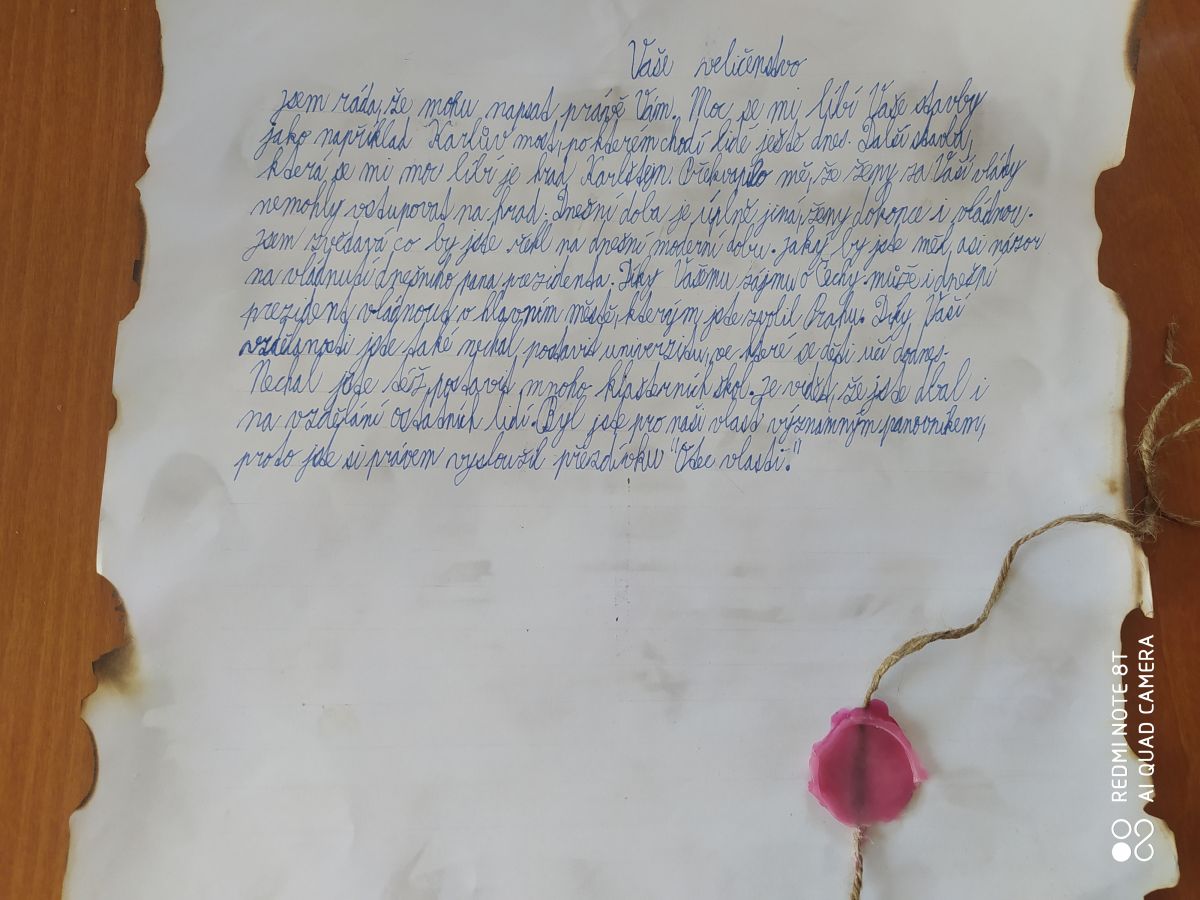 Vaše veličenstvo
jsem ráda, že mohu napsat právě Vám. Moc se mi líbí Vaše stavby
jako například Karlův most, po kterém chodí lidé ještě dnes. Další stavba,
která se mi moc líbí je hrad Karlštejn. Překvapilo mě, že ženy za Vaší vlády
nemohly vstupovat na hrad. Dnešní doba je úplně jiná, ženy dokonce i vládnou.
Jsem zvědavá co by jste řekl na dnešní moderní dobu. Jaký by jste měl asi názor
na vládnutí dnešního pana prezidenta. Díky Vašemu zájmu o Čechy může i dnešní
prezident vládnout v hlavním městě, kterým jste zvolil Prahu. Díky Vaší
vzdělanosti jste také nechal postavit univerzitu, ve které se děti učí dodnes.
Nechal jste též postavit mnoho klášterních škol. Je vidět, že jste dbal i
na vzdělání ostatních lidí. Byl jste pro naši vlast významným panovníkem,
proto jste si právem vysloužil přezdívku "Otec vlasti."
REDMI NOTE 8T
AI QUAD CAMERA